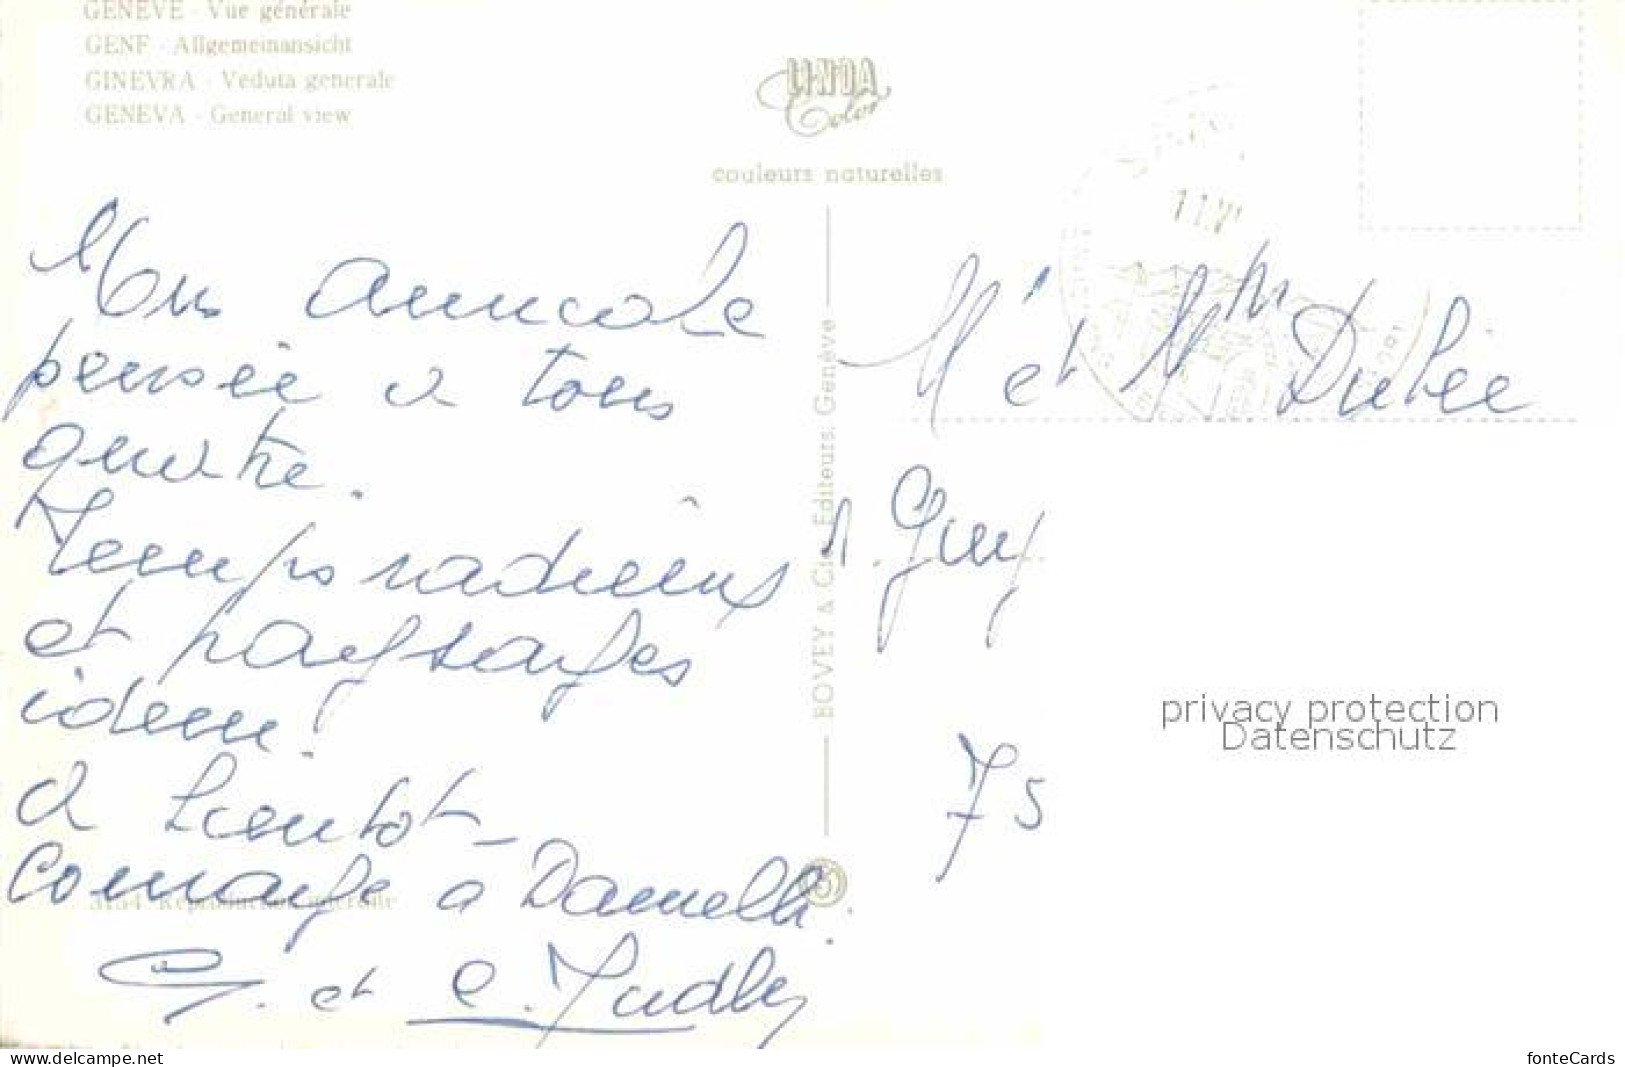 GENÈVE - Vue générale
GENF - Allgemeinansicht
GINEVRA - Veduta generale
GENEVA - General view
LINDA
Color
couleurs naturelles
Mon amicale
pensée à tous
quatre.
Temps radieux
et paysages
idem!
à bientôt -
Courage à Danielle.
G. et C.
BOVEY & Cie, Editeurs, Genève
3134 Reproduction interdite
M. et Mme Dubée
Guy
75
privacy protection
Datenschutz
www.delcampe.net
fonteCards